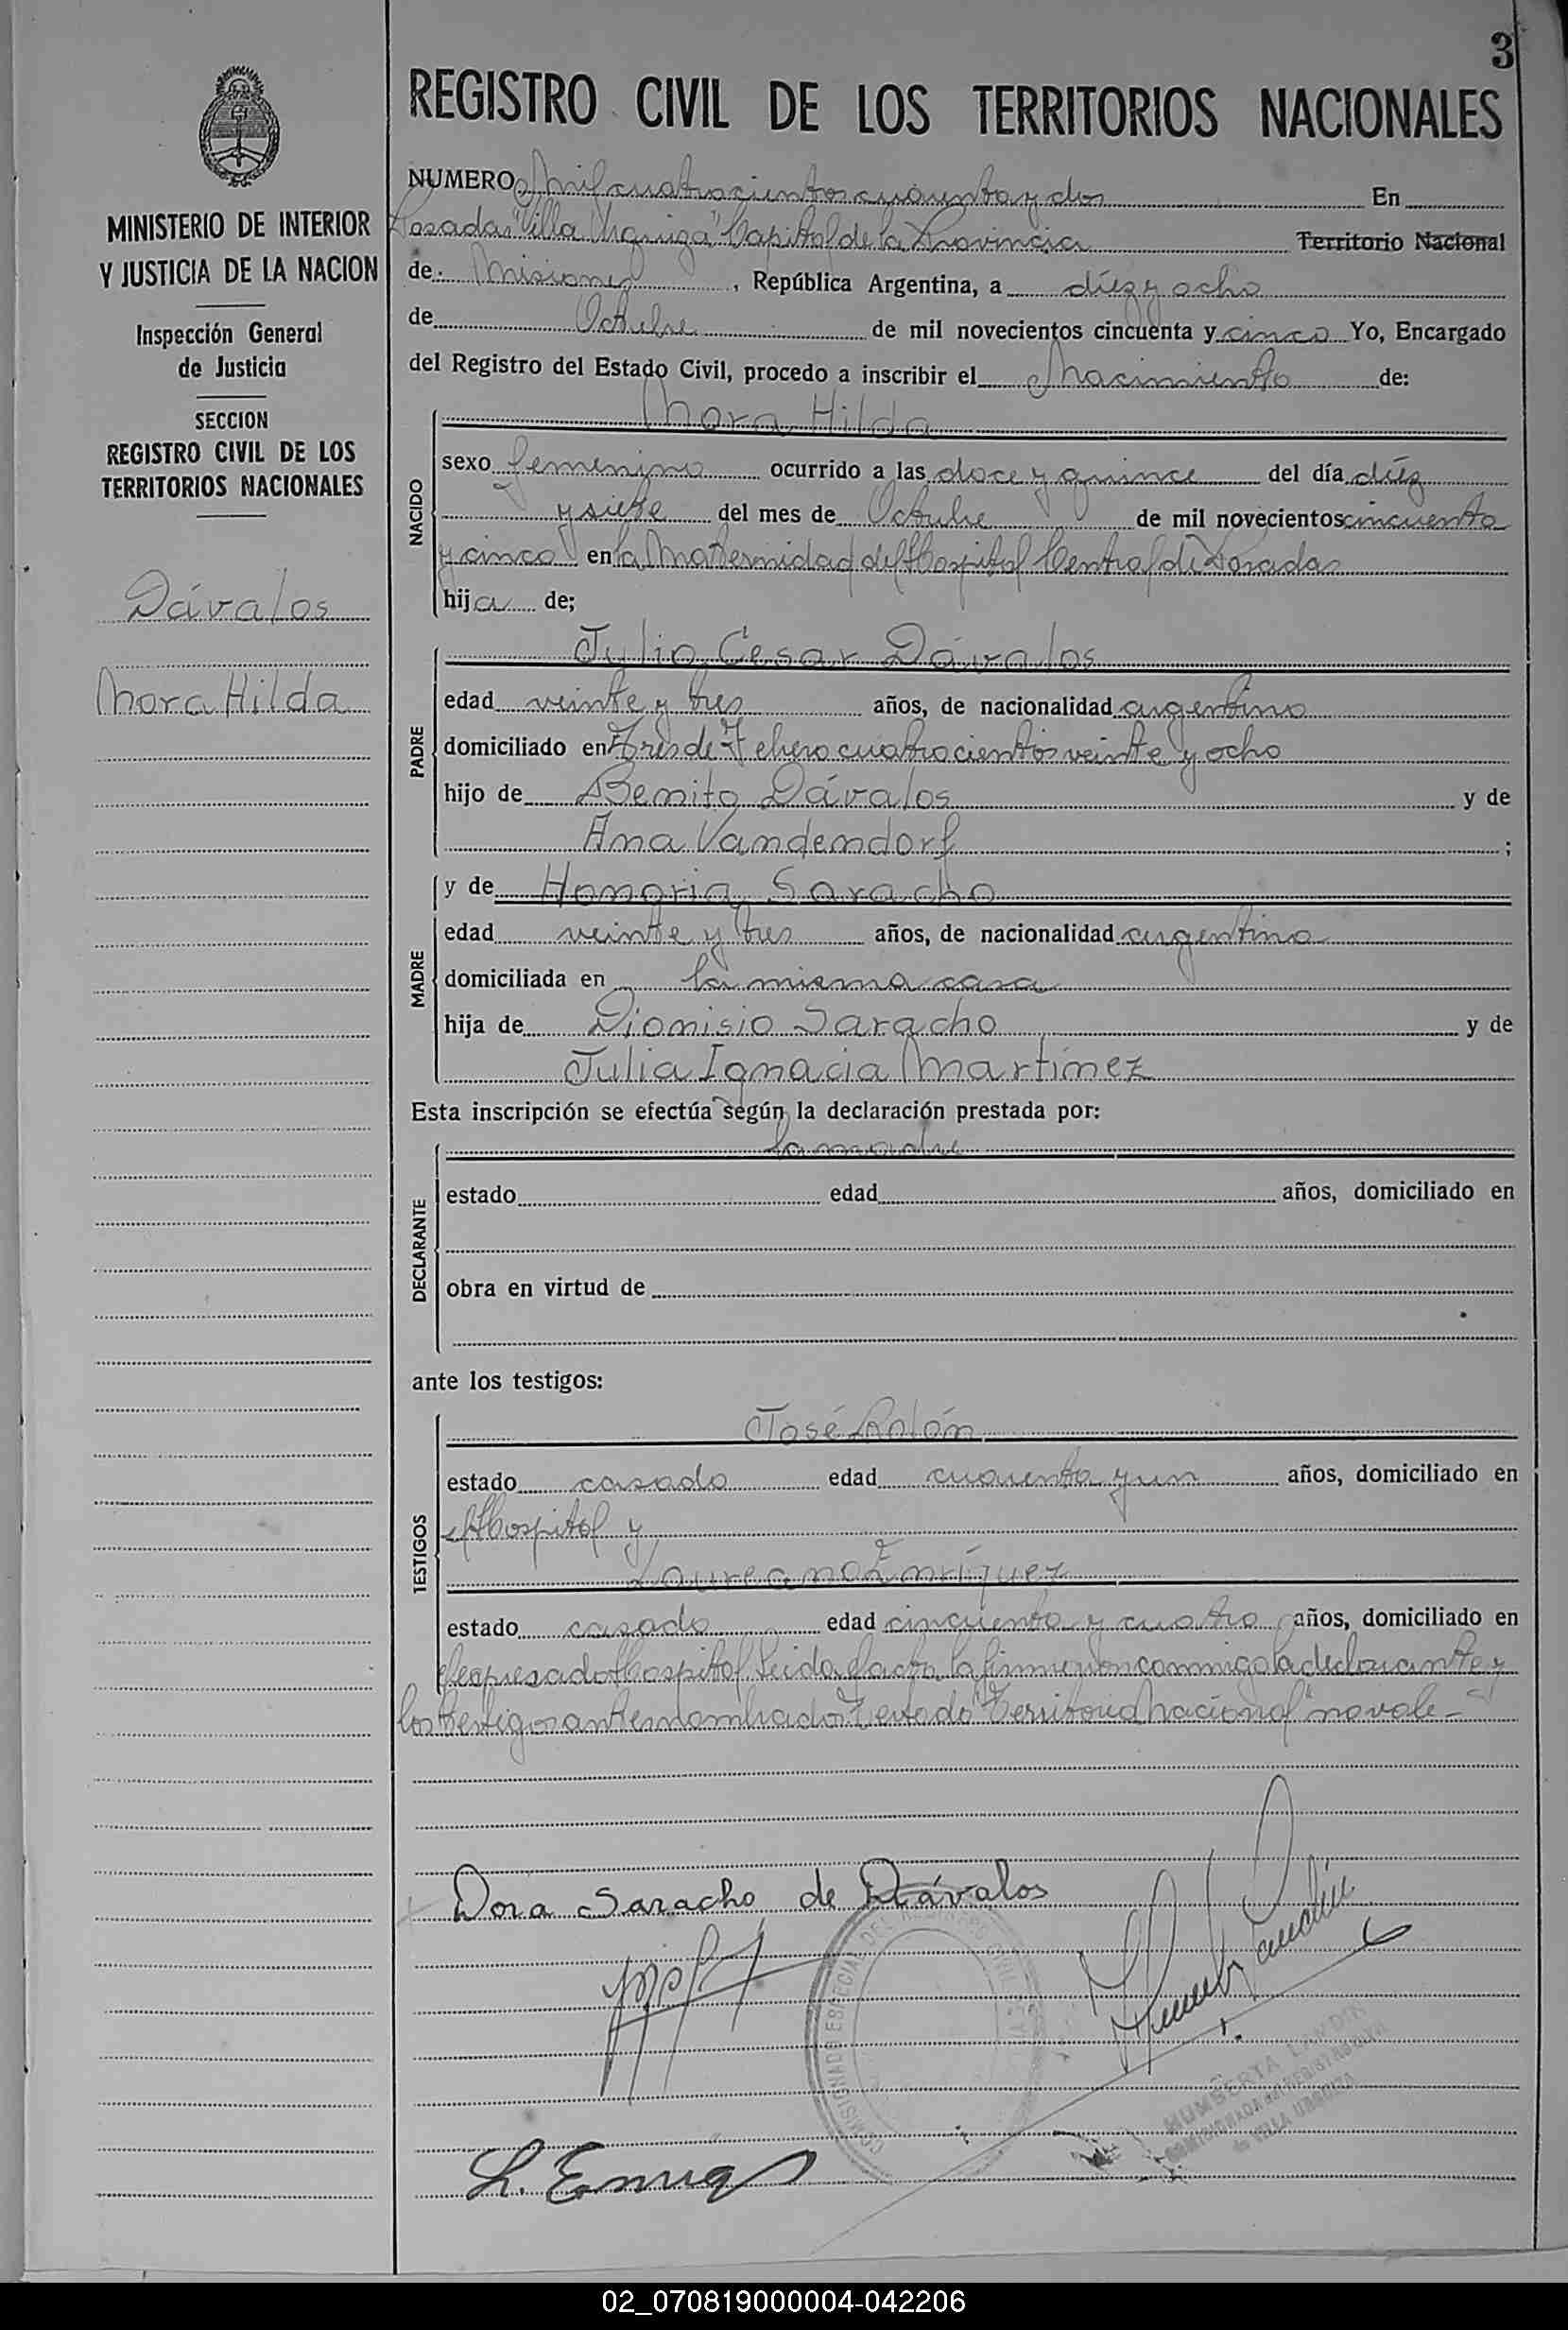 3
REGISTRO CIVIL DE LOS TERRITORIOS NACIONALES
MINISTERIO DE INTERIOR
Y JUSTICIA DE LA NACION
Inspección General
de Justicia
SECCION
REGISTRO CIVIL DE LOS
TERRITORIOS NACIONALES
Dávalos
Nora Hilda
NUMERO Mil cuatrocientos cuarenta y dos En
Posadas "Villa Urquiza" Capital de la Provincia Territorio Nacional
de Misiones, República Argentina, a diez y ocho
de Octubre de mil novecientos cincuenta y cinco Yo, Encargado
del Registro del Estado Civil, procedo a inscribir el Nacimiento de:
NACIDO
Nora Hilda
sexo femenino ocurrido a las doce y quince del día diez
y siete del mes de Octubre de mil novecientos cincuenta
y cinco en la Maternidad del Hospital Central de Posadas
hija de;
PADRE
Julio Cesar Dávalos
edad veinte y tres años, de nacionalidad argentino
domiciliado en Tres de Febrero cuatrocientos veinte y ocho
hijo de Benito Dávalos y de
Ana Vandendorf ;
MADRE
y de Honoria Saracho
edad veinte y tres años, de nacionalidad argentina
domiciliada en la misma casa
hija de Dionisio Saracho y de
Julia Ignacia Martínez
Esta inscripción se efectúa según la declaración prestada por:
DECLARANTE
la madre
estado edad años, domiciliado en
obra en virtud de
ante los testigos:
TESTIGOS
José Rolón
estado casado edad cuarenta y un años, domiciliado en
el Hospital y
Laureano Enríquez
estado casado edad cincuenta y cuatro años, domiciliado en
el expresado Hospital Leida el acta la firmaron conmigo la declarante y
los testigos antes nombrados Testado "Territorio Nacional" no vale -
Dora Saracho de Dávalos
L. Enriq
COMISIONADO ESPECIAL DEL REGISTRO CIVIL
HUMBERTA LANDIN
de VILLA URQUIZA
02_070819000004-042206